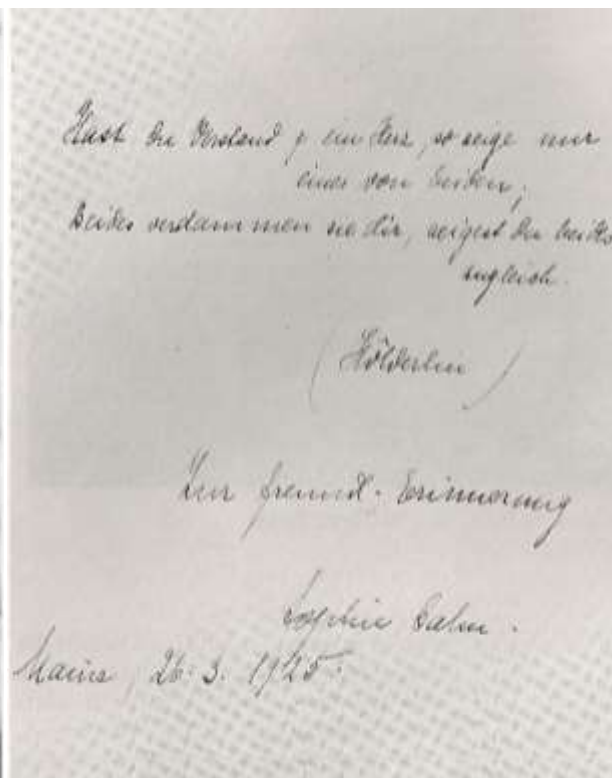 Hast du Verstand & ein Herz, so zeige nur
eines von beiden;
Beides verdammen sie dir, zeigest du beides
zugleich.
(Hölderlin)
Zur freundl. Erinnerung
Sophie
Mainz, 26.3.1925.